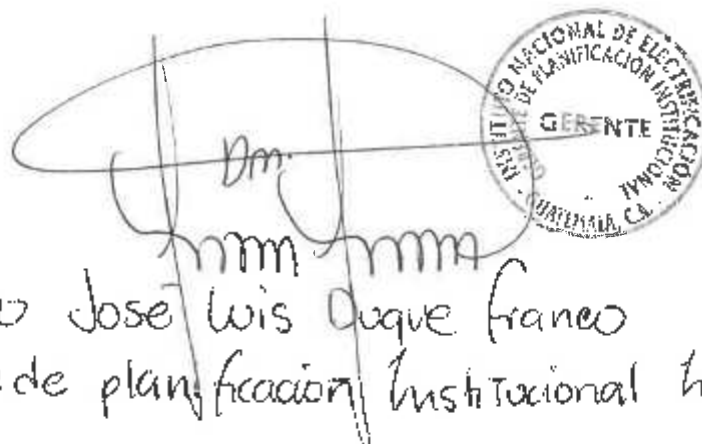 INSTITUTO NACIONAL DE ELECTRIFICACIÓN
GERENTE DE PLANIFICACIÓN INSTITUCIONAL
GERENTE
- GUATEMALA, C.A. -
Dm.
o José Luis Duque Franco
de planificación Institucional